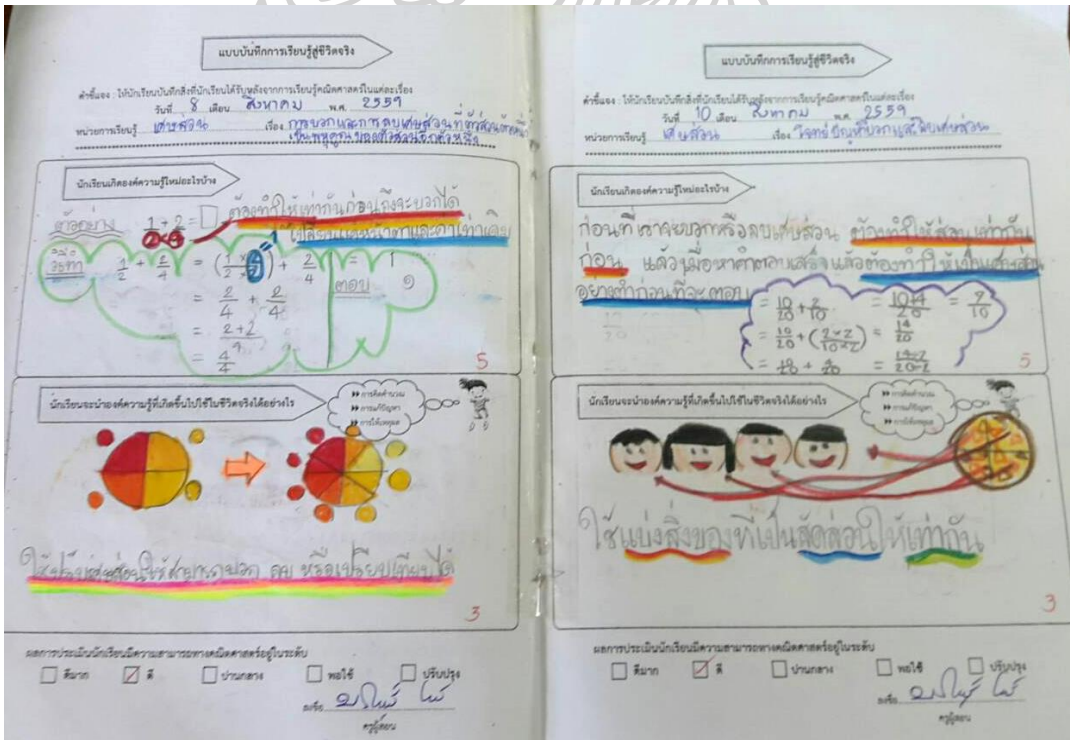 แบบบันทึกการเรียนรู้สู่ชีวิตจริง
คำชี้แจง : ให้นักเรียนบันทึกสิ่งที่นักเรียนได้รับหลังจากการเรียนรู้คณิตศาสตร์ในแต่ละเรื่อง
วันที่ 8 เดือน สิงหาคม พ.ศ. 2559
หน่วยการเรียนรู้ เศษส่วน เรื่อง การบวกและการลบเศษส่วนที่ตัวส่วนตัวหนึ่ง
เป็นพหุคูณของตัวส่วนอีกตัวหนึ่ง
นักเรียนเกิดองค์ความรู้ใหม่อะไรบ้าง
ตัวอย่าง 1/2 + 2/4 = □ ต้องทำให้เท่ากันก่อนถึงจะบวกได้
วิธีทำ 1/2 + 2/4 = (1/2 × 2/2) + 2/4 = 1
= 2/4 + 2/4 ตอบ ๑
= 2+2/4
= 4/4
5
นักเรียนจะนำองค์ความรู้ที่เกิดขึ้นไปใช้ในชีวิตจริงได้อย่างไร
การคิดคำนวณ
การแก้ปัญหา
การให้เหตุผล
3
ผลการประเมินนักเรียนมีความสามารถทางคณิตศาสตร์อยู่ในระดับ
ดีมาก ดี ปานกลาง พอใช้ ปรับปรุง
ลงชื่อ
ครูผู้สอน
แบบบันทึกการเรียนรู้สู่ชีวิตจริง
คำชี้แจง : ให้นักเรียนบันทึกสิ่งที่นักเรียนได้รับหลังจากการเรียนรู้คณิตศาสตร์ในแต่ละเรื่อง
วันที่ 10 เดือน สิงหาคม พ.ศ. 2559
หน่วยการเรียนรู้ เศษส่วน เรื่อง โจทย์ปัญหาบวกและลบเศษส่วน
นักเรียนเกิดองค์ความรู้ใหม่อะไรบ้าง
ก่อนที่เราจะบวกหรือลบเศษส่วน ต้องทำให้ส่วนเท่ากัน
ก่อน แล้วเมื่อหาคำตอบเสร็จแล้วต้องทำให้เป็นเศษส่วน
อย่างต่ำก่อนที่จะตอบ
= 10/20 + 2/10 = 10+4/20 = 7/10
= 10/20 + (2×2/10×2) = 14/20
= 10/20 + 4/20 = 14÷2/20÷2
5
นักเรียนจะนำองค์ความรู้ที่เกิดขึ้นไปใช้ในชีวิตจริงได้อย่างไร
การคิดคำนวณ
การแก้ปัญหา
การให้เหตุผล
ใช้แบ่งสิ่งของที่เป็นสัดส่วนให้เท่ากัน
3
ผลการประเมินนักเรียนมีความสามารถทางคณิตศาสตร์อยู่ในระดับ
ดีมาก ดี ปานกลาง พอใช้ ปรับปรุง
ลงชื่อ
ครูผู้สอน